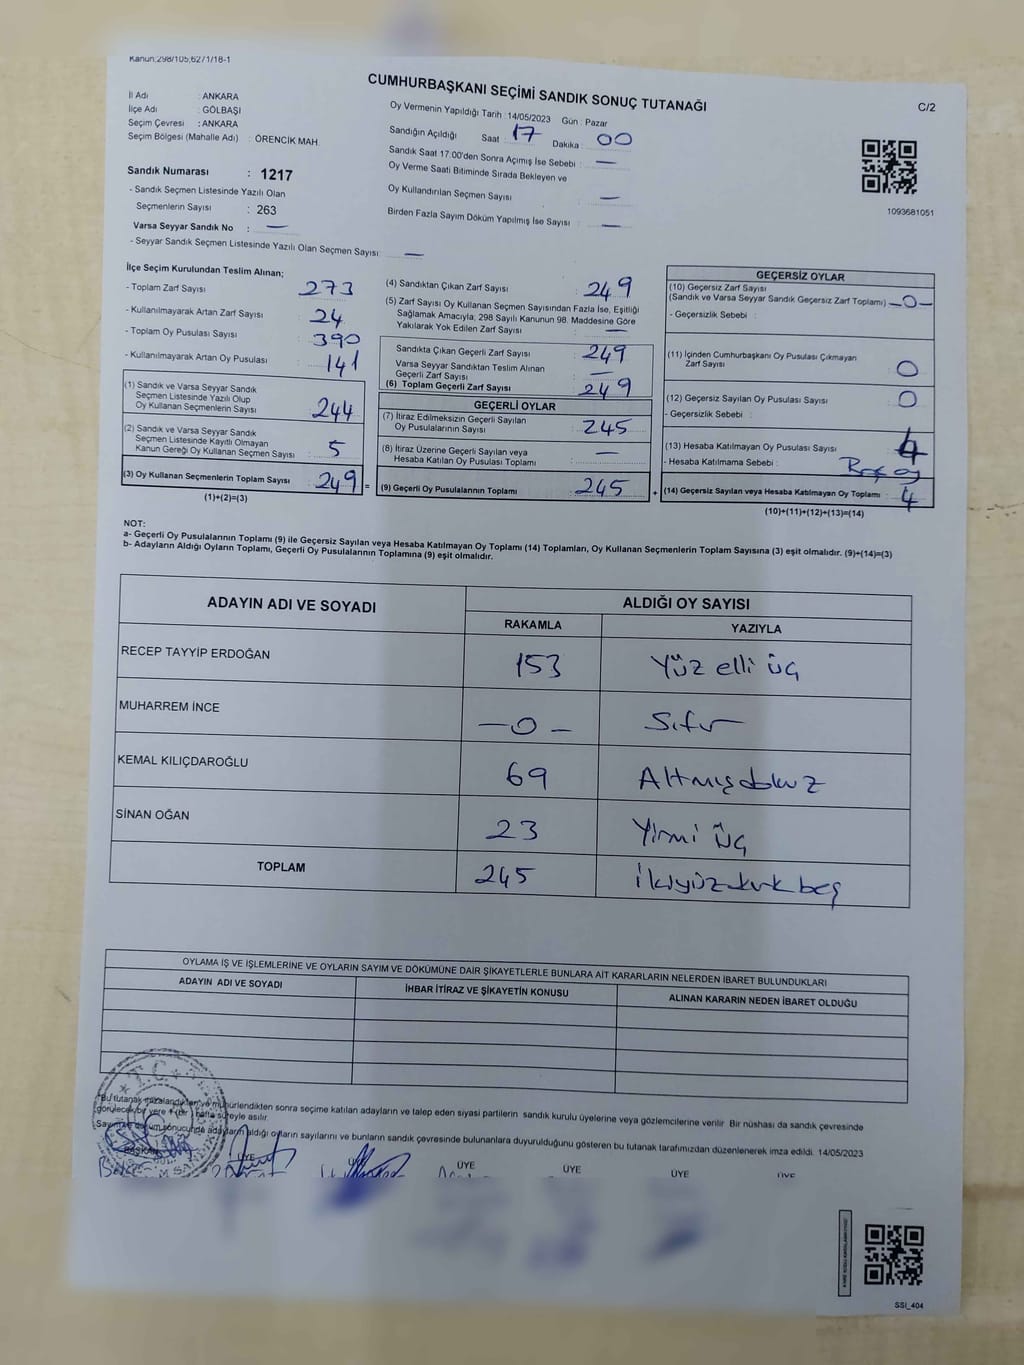 Kanun;298/105,6271/18-1
CUMHURBAŞKANI SEÇİMİ SANDIK SONUÇ TUTANAĞI
C/2
İl Adı : ANKARA
İlçe Adı : GÖLBAŞI
Seçim Çevresi : ANKARA
Seçim Bölgesi (Mahalle Adı) : ÖRENCİK MAH.
Oy Vermenin Yapıldığı Tarih : 14/05/2023 Gün : Pazar
Sandığın Açıldığı Saat 17 Dakika : 00
Sandık Saat 17:00'den Sonra Açımış İse Sebebi : —
Oy Verme Saati Bitiminde Sırada Bekleyen ve
Oy Kullandırılan Seçmen Sayısı : —
Birden Fazla Sayım Döküm Yapılmış İse Sayısı : —
1093681051
Sandık Numarası : 1217
- Sandık Seçmen Listesinde Yazılı Olan
Seçmenlerin Sayısı : 263
Varsa Seyyar Sandık No : —
- Seyyar Sandık Seçmen Listesinde Yazılı Olan Seçmen Sayısı: —
İlçe Seçim Kurulundan Teslim Alınan;
- Toplam Zarf Sayısı : 273
- Kullanılmayarak Artan Zarf Sayısı : 24
- Toplam Oy Pusulası Sayısı : 390
- Kullanılmayarak Artan Oy Pusulası : 141
(1) Sandık ve Varsa Seyyar Sandık
Seçmen Listesinde Yazılı Olup
Oy Kullanan Seçmenlerin Sayısı : 244
(2) Sandık ve Varsa Seyyar Sandık
Seçmen Listesinde Kayıtlı Olmayan
Kanun Gereği Oy Kullanan Seçmen Sayısı : 5
(3) Oy Kullanan Seçmenlerin Toplam Sayısı : 249 =
(1)+(2)=(3)
(4) Sandıktan Çıkan Zarf Sayısı : 249
(5) Zarf Sayısı Oy Kullanan Seçmen Sayısından Fazla İse, Eşitliği
Sağlamak Amacıyla; 298 Sayılı Kanunun 98. Maddesine Göre
Yakılarak Yok Edilen Zarf Sayısı : —
Sandıkta Çıkan Geçerli Zarf Sayısı : 249
Varsa Seyyar Sandıktan Teslim Alınan
Geçerli Zarf Sayısı : —
(6) Toplam Geçerli Zarf Sayısı : 249
GEÇERLİ OYLAR
(7) İtiraz Edilmeksizin Geçerli Sayılan
Oy Pusulalarının Sayısı : 245
(8) İtiraz Üzerine Geçerli Sayılan veya
Hesaba Katılan Oy Pusulası Toplamı : —
(9) Geçerli Oy Pusulalarının Toplamı : 245 +
GEÇERSİZ OYLAR
(10) Geçersiz Zarf Sayısı
(Sandık ve Varsa Seyyar Sandık Geçersiz Zarf Toplamı) : —0—
- Geçersizlik Sebebi :
(11) İçinden Cumhurbaşkanı Oy Pusulası Çıkmayan
Zarf Sayısı : 0
(12) Geçersiz Sayılan Oy Pusulası Sayısı : 0
- Geçersizlik Sebebi :
(13) Hesaba Katılmayan Oy Pusulası Sayısı : 4
- Hesaba Katılmama Sebebi : Boş oy
(14) Geçersiz Sayılan veya Hesaba Katılmayan Oy Toplamı : 4
(10)+(11)+(12)+(13)=(14)
NOT:
a- Geçerli Oy Pusulalarının Toplamı (9) ile Geçersiz Sayılan veya Hesaba Katılmayan Oy Toplamı (14) Toplamları, Oy Kullanan Seçmenlerin Toplam Sayısına (3) eşit olmalıdır. (9)+(14)=(3)
b- Adayların Aldığı Oyların Toplamı, Geçerli Oy Pusulalarının Toplamına (9) eşit olmalıdır.
ADAYIN ADI VE SOYADI ALDIĞI OY SAYISI
RAKAMLA YAZIYLA
RECEP TAYYİP ERDOĞAN 153 Yüz elli üç
MUHARREM İNCE —0— Sıfır
KEMAL KILIÇDAROĞLU 69 Altmışdokuz
SİNAN OĞAN 23 Yirmi üç
TOPLAM 245 ikiyüzkırkbeş
OYLAMA İŞ VE İŞLEMLERİNE VE OYLARIN SAYIM VE DÖKÜMÜNE DAİR ŞİKAYETLERLE BUNLARA AİT KARARLARIN NELERDEN İBARET BULUNDUKLARI
ADAYIN ADI VE SOYADI İHBAR İTİRAZ VE ŞİKAYETİN KONUSU ALINAN KARARIN NEDEN İBARET OLDUĞU
T.C.
*Bu tutanak imzalandıktan ve mühürlendikten sonra seçime katılan adayların ve talep eden siyasi partilerin sandık kurulu üyelerine veya gözlemcilerine verilir. Bir nüshası da sandık çevresinde
görülecek bir yere 1 (bir) hafta süreyle asılır.
Sayım ve döküm sonucunda adayların aldığı oyların sayılarını ve bunların sandık çevresinde bulunanlara duyurulduğunu gösteren bu tutanak tarafımızdan düzenlenerek imza edildi. 14/05/2023
BAŞKAN ÜYE ÜYE ÜYE ÜYE ÜYE ÜYE
SSI_404